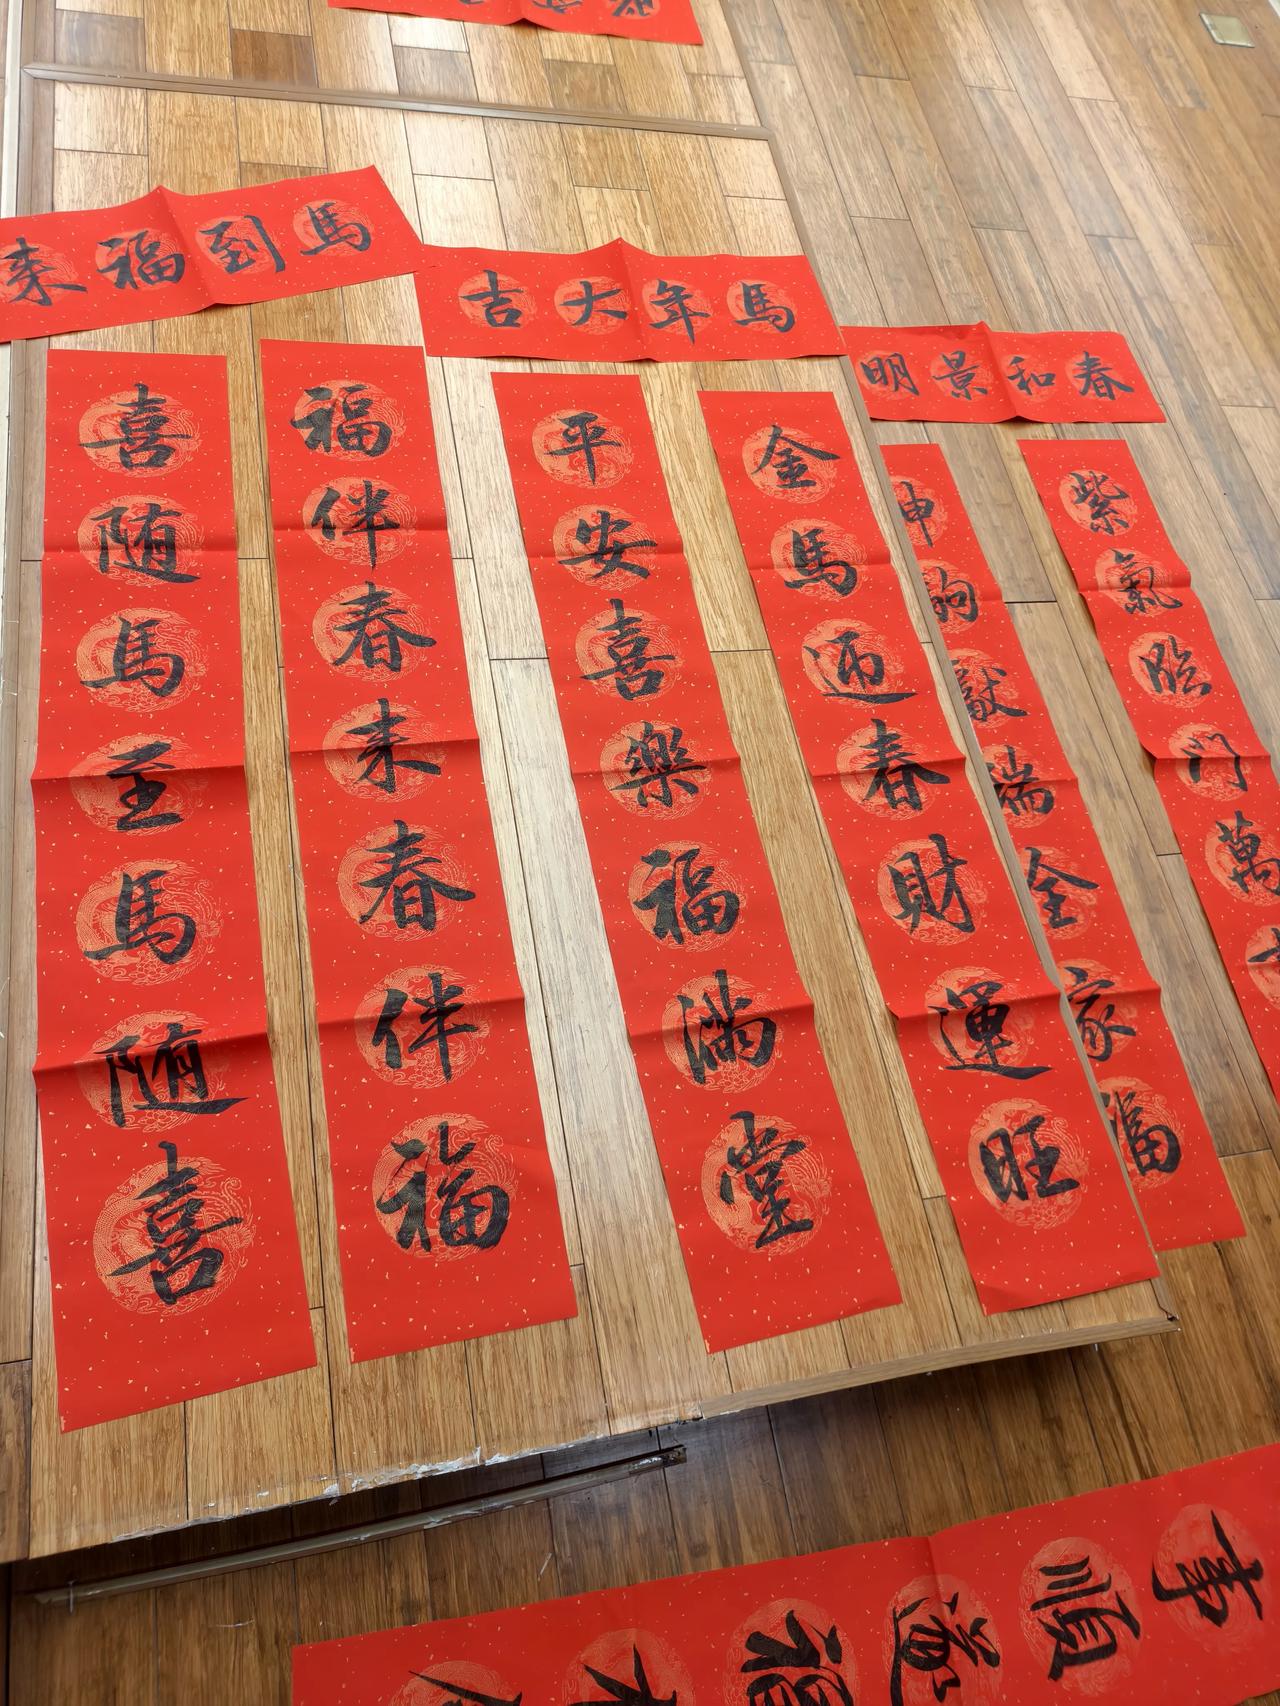 馬到福来
福伴春来春伴福
喜随馬至馬随喜
馬年大吉
金馬迎春財運旺
平安喜樂福滿堂
春和景明
紫氣臨門萬
神駒獻瑞全家福
事順